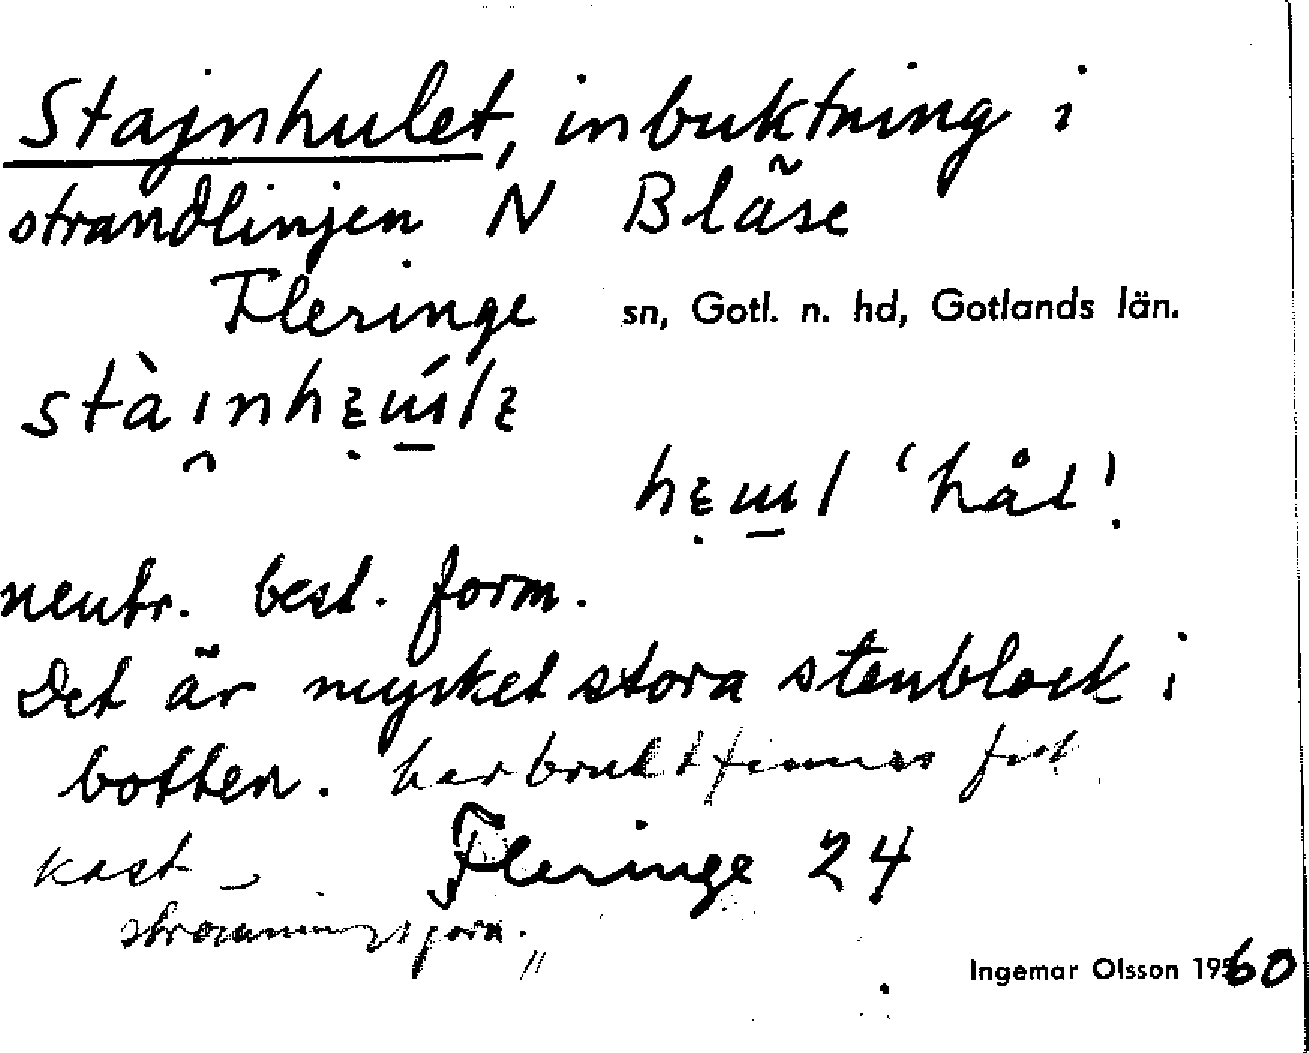 Stajnhulet, inbuktning i
strandlinjen N Bläse
Fleringe sn, Gotl. n. hd, Gotlands län.
hål!
neutr. best. form.
Det är mycket stora stenblock i
botten. har brukt finnas
kast
Fleringe 24
Ingemar Olsson 1960